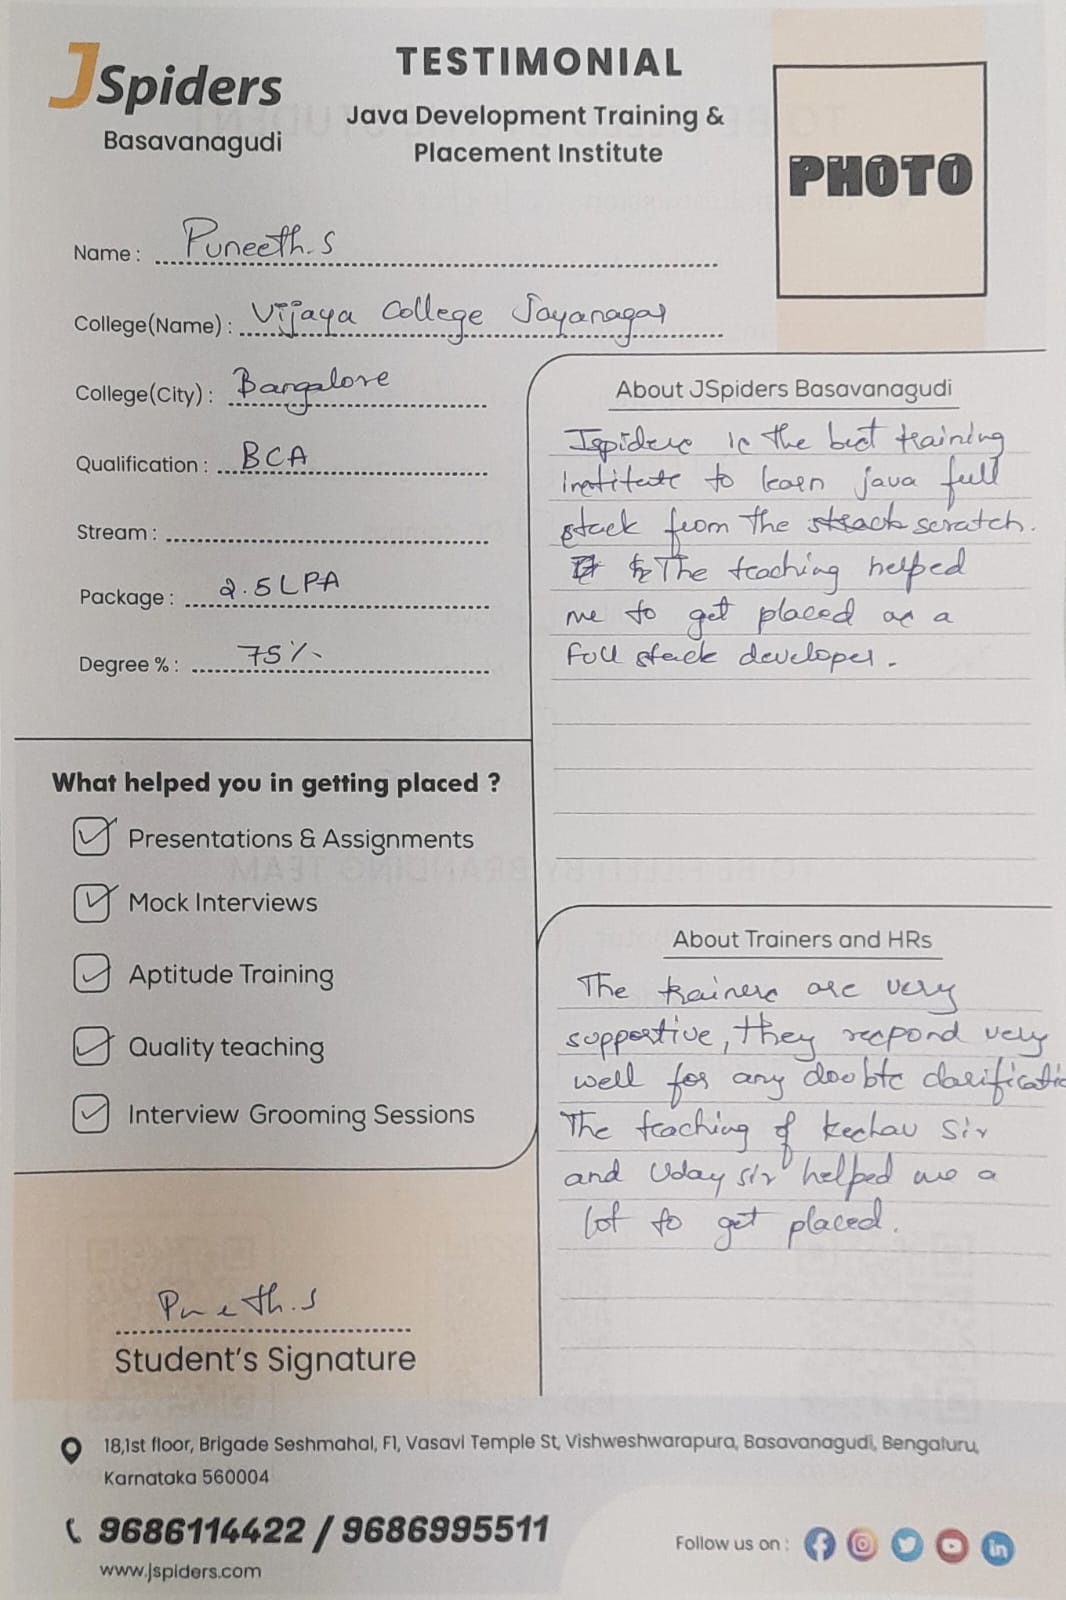 JSpiders
Basavanagudi
TESTIMONIAL
Java Development Training &
Placement Institute
PHOTO
Name : Puneeth.S
College(Name) : Vijaya College Jayanagar
College(City) : Bangalore
Qualification : BCA
Stream :
Package : 2.5 LPA
Degree % : 75%
About JSpiders Basavanagudi
Jspiders is the best training
institute to learn java full
stack from the scratch.
The teaching helped
me to get placed as a
full stack developer.
What helped you in getting placed ?
Presentations & Assignments
Mock Interviews
Aptitude Training
Quality teaching
Interview Grooming Sessions
About Trainers and HRs
The trainers are very
supportive, they respond very
well for any doubts clarificatio
The teaching of Keshav Sir
and Uday sir helped me a
lot to get placed.
Puneeth.S
Student's Signature
18,1st floor, Brigade Seshmahal, F1, Vasavi Temple St, Vishweshwarapura, Basavanagudi, Bengaluru,
Karnataka 560004
9686114422 / 9686995511
www.jspiders.com
Follow us on :